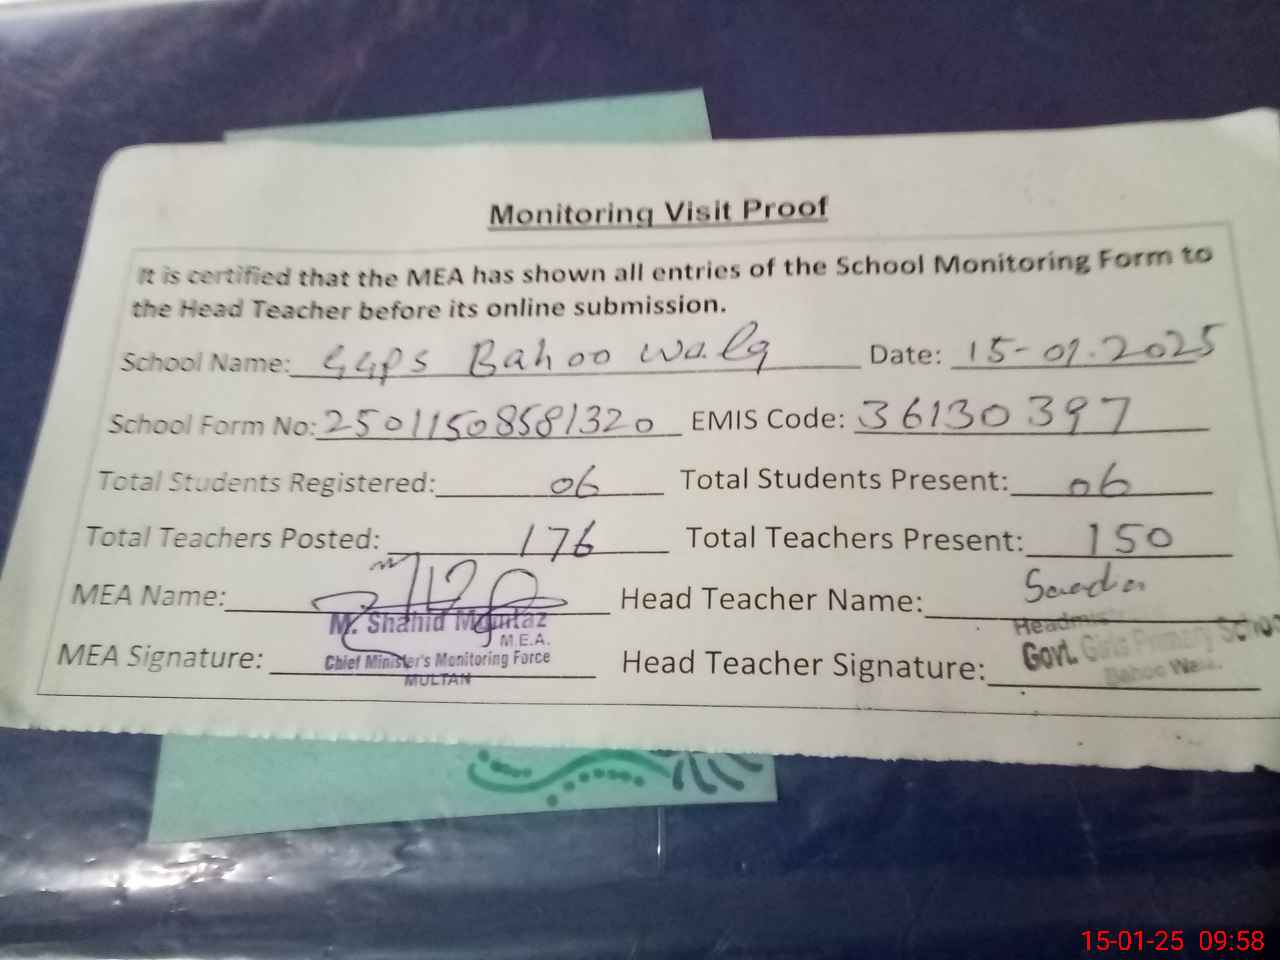 Monitoring Visit Proof
It is certified that the MEA has shown all entries of the School Monitoring Form to
the Head Teacher before its online submission.
School Name: GGPS Bahoo Wala Date: 15-01-2025
School Form No: 25011508581320 EMIS Code: 36130397
Total Students Registered: 06 Total Students Present: 06
Total Teachers Posted: 176 Total Teachers Present: 150
MEA Name: Head Teacher Name:
M. Shahid Mumtaz
M.E.A.
Chief Minister's Monitoring Force
MULTAN
MEA Signature: Head Teacher Signature:
Govt. Girls Primary School
Bahoo
15-01-25 09:58